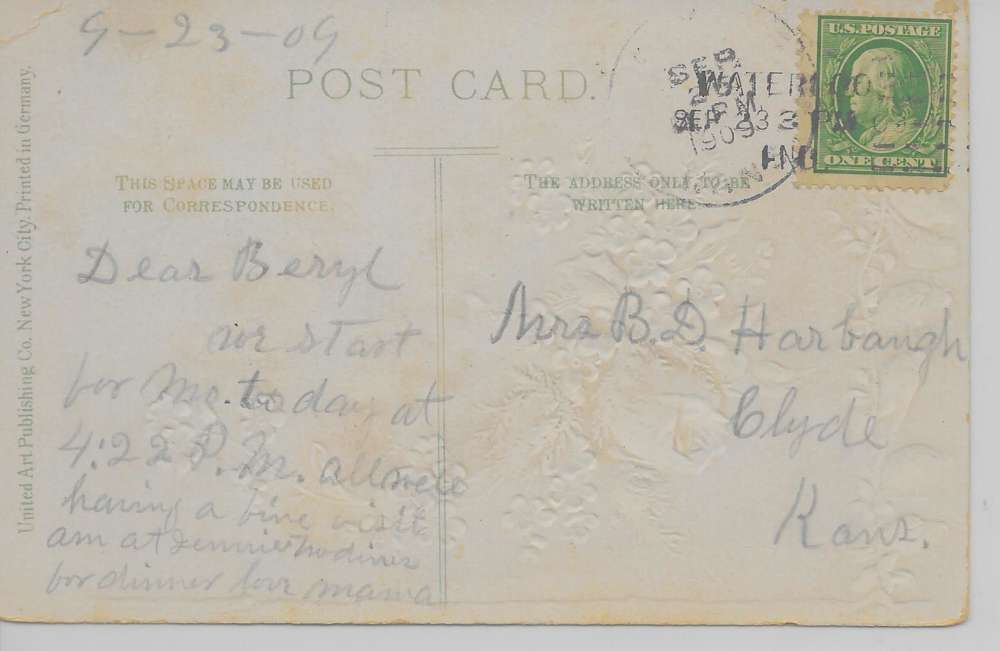 9-23-09
POST CARD.
U.S. POSTAGE
ONE CENT
SEP
1909
WATERLOO
SEP 23 3 PM
IND
THIS SPACE MAY BE USED
FOR CORRESPONDENCE.
THE ADDRESS ONLY TO BE
WRITTEN HERE
United Art Publishing Co. New York City. Printed in Germany.
Dear Beryl
we start
for Mo. today at
4:22 P.M. all well
having a fine visit
am at Jennie
for dinner love mama
Mrs B.D. Harbaugh
Clyde
Kans.